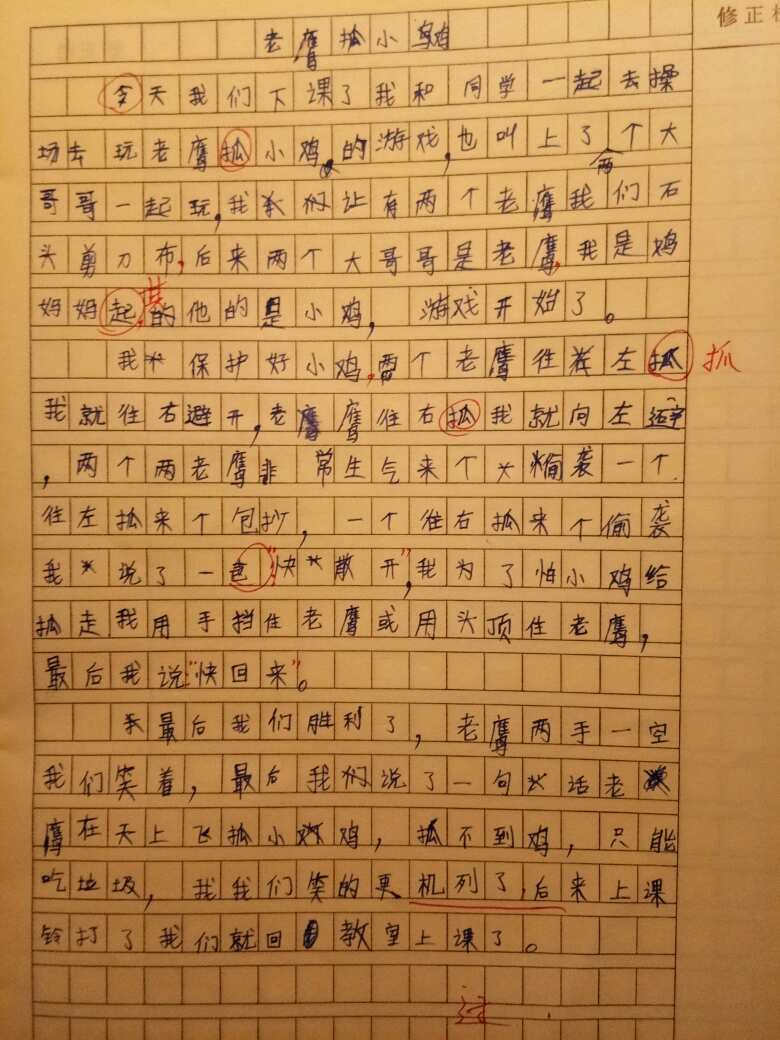 修正
老鹰狐小鸡
今天我们下课了我和同学一起去操
场去玩老鹰狐小鸡的游戏,也叫上了两个大
哥哥一起玩,我们让有两个老鹰我们石
头剪刀布,后来两个大哥哥是老鹰,我是鸡
妈妈起其的他的是小鸡,游戏开始了。
我保护好小鸡,两个老鹰往左狐 抓
我就往右避开,老鹰往右狐我就向左避
,两个两老鹰非常生气来个偷袭一个
往左狐来个包抄,一个往右狐来个偷袭
我说了一句“快散开”,我为了怕小鸡给
狐走我用手挡住老鹰或用头顶住老鹰,
最后我说“快回来”。
最后我们胜利了,老鹰两手一空
我们笑着,最后我们说了一句话老
鹰在天上飞狐小鸡,狐不到鸡,只能
吃垃圾,我我们笑的更机列了,后来上课
铃打了我们就回教室上课了。